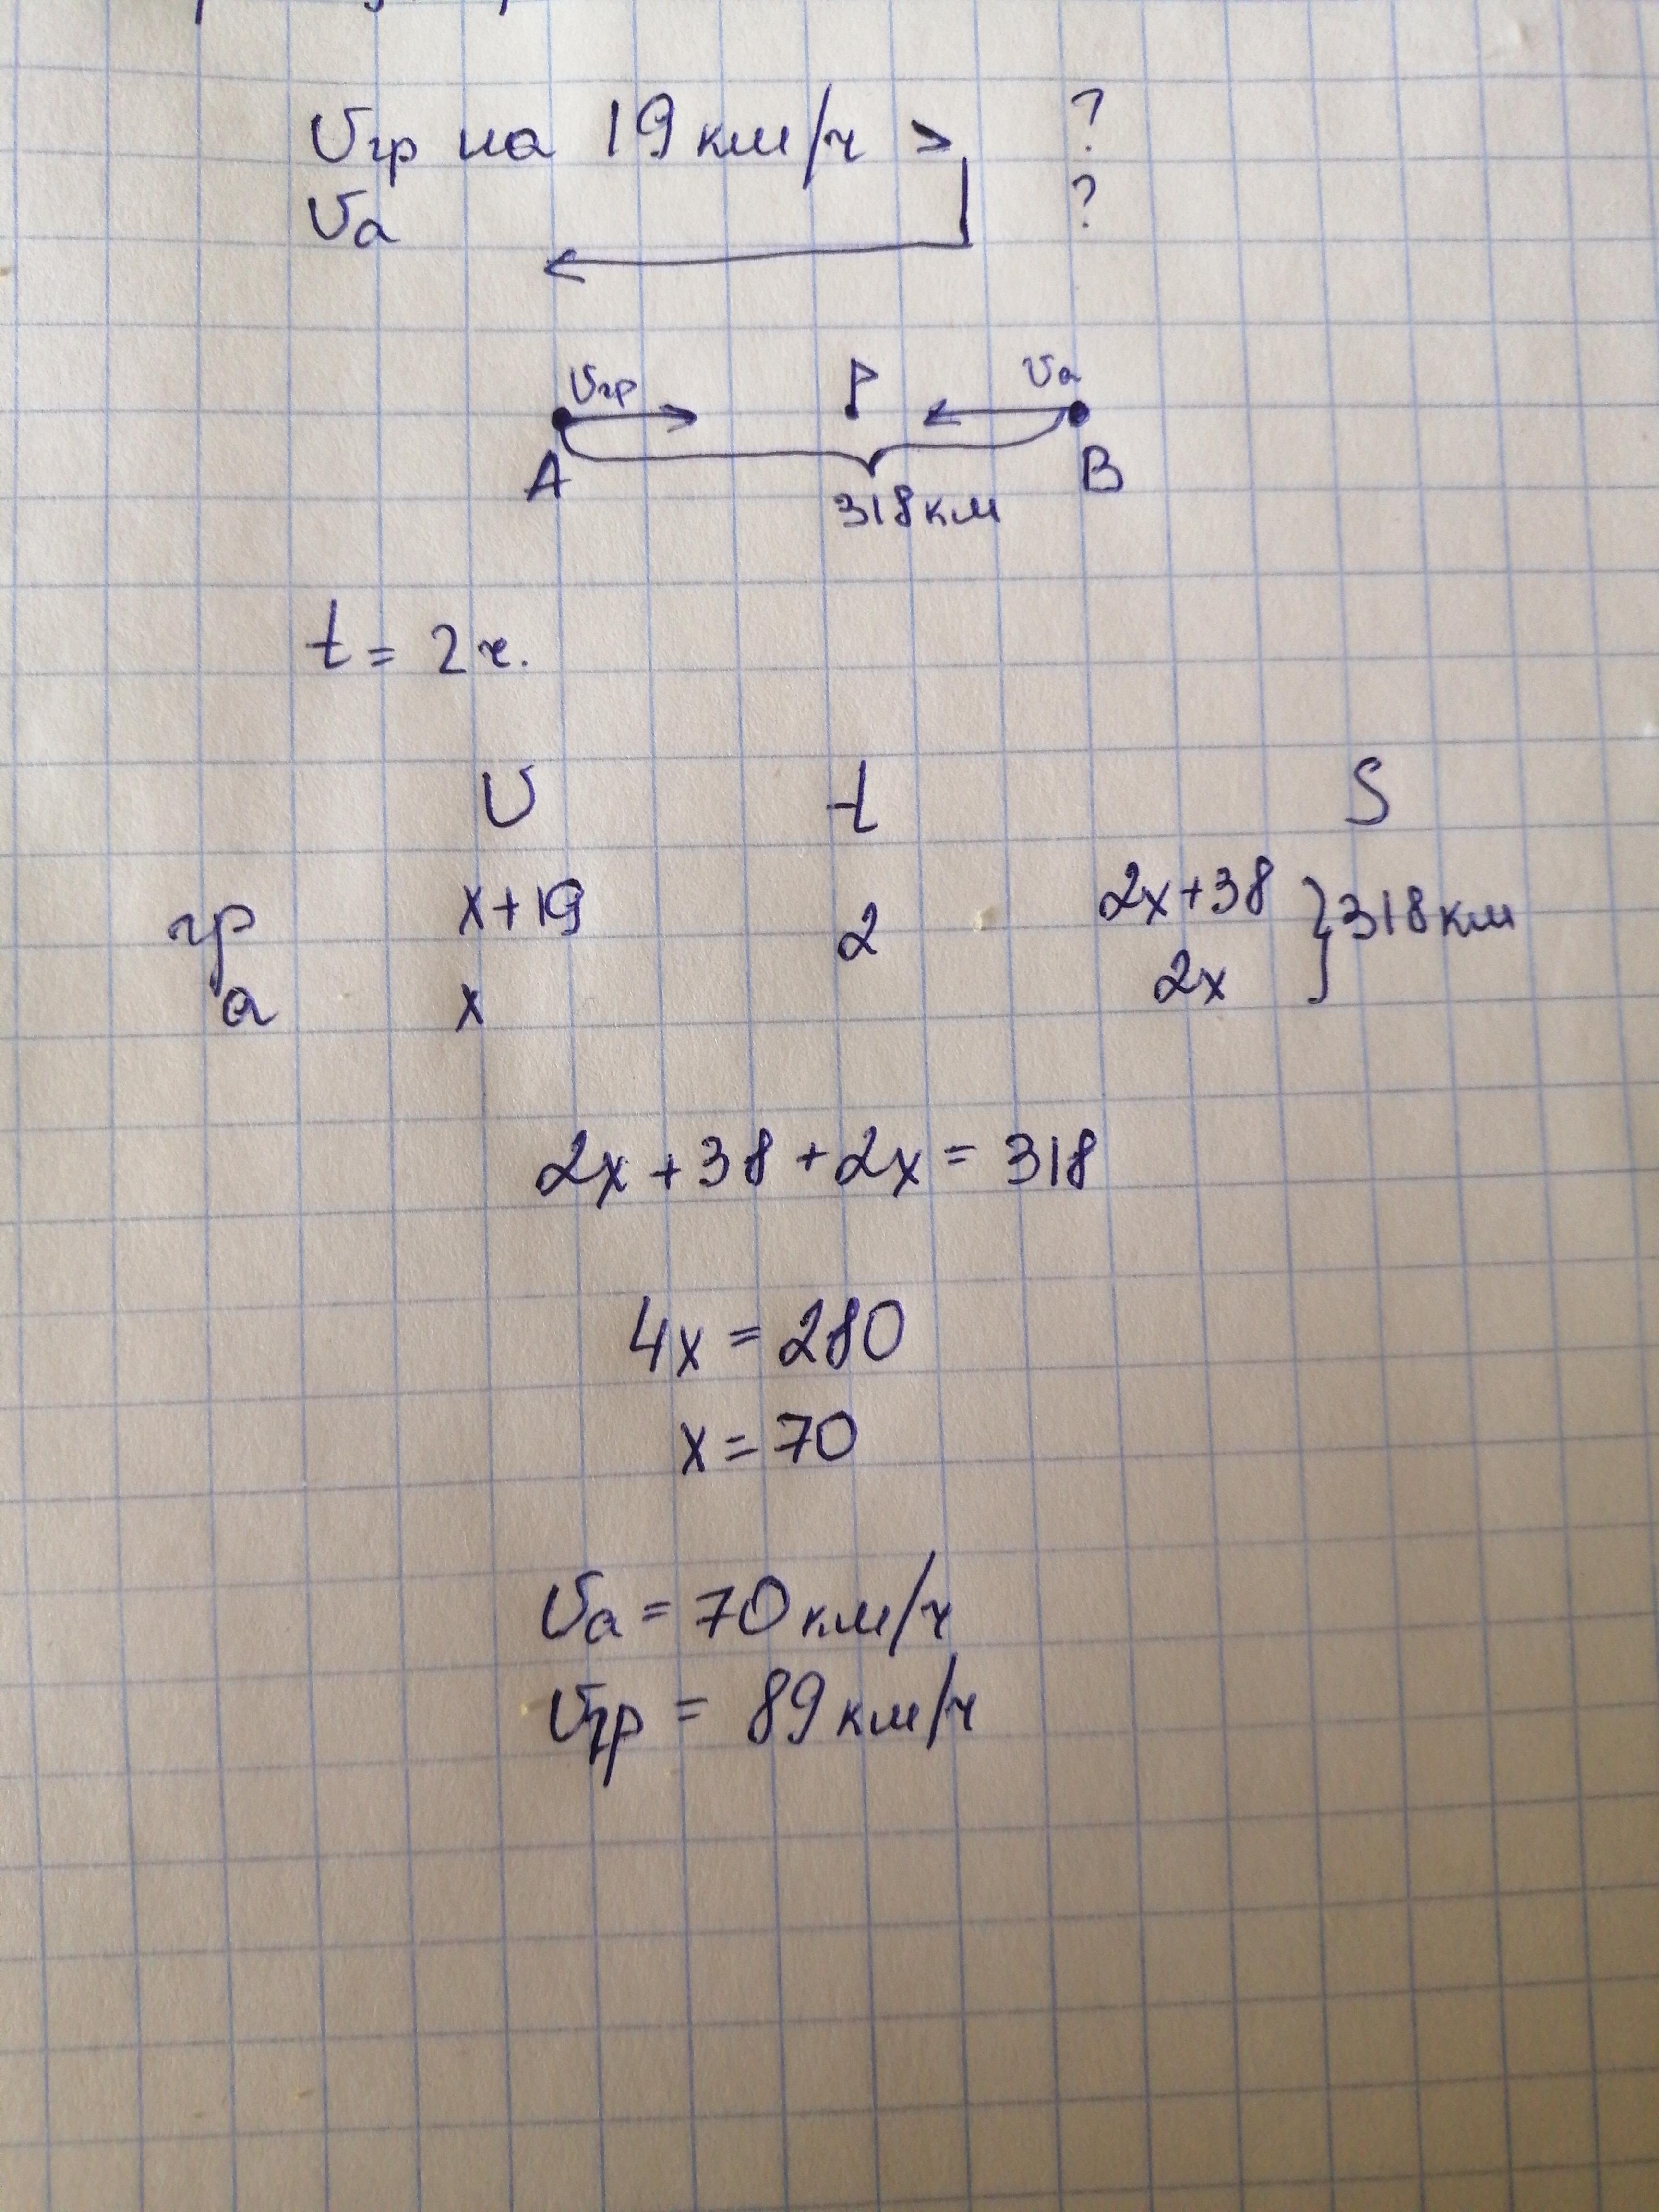 Vгр на 19 км/ч > ?
Vа ?
Vгр Vа
A B
318 км
t = 2 ч.
V t S
гр x+19 2 2x+38 } 318 км
а x 2x
2x + 38 + 2x = 318
4x = 280
x = 70
Vа = 70 км/ч
Vгр = 89 км/ч